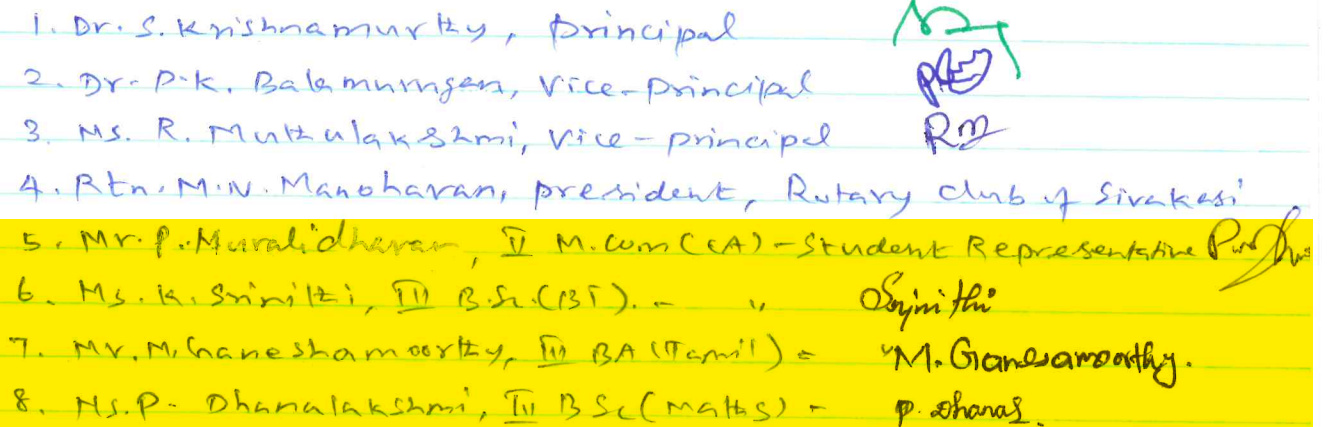 1. Dr. S. Krishnamurthy, principal
2. Dr. P.K. Balamurugan, Vice-principal
3. Ms. R. Muthulakshmi, Vice-principal RM
4. Rtn. M.N. Manoharan, president, Rotary club of Sivakasi
5. Mr. P. Muralidharan, II M.Com (CA) - Student Representative
6. Ms. K. Srinithi, III B.Sc. (BT). - " Srinithi
7. Mr. M. Ganeshamoorthy, III BA (Tamil) - " M. Ganesamoorthy.
8. Ms. P. Dhanalakshmi, III B Sc (Maths) - P. Dhanal.